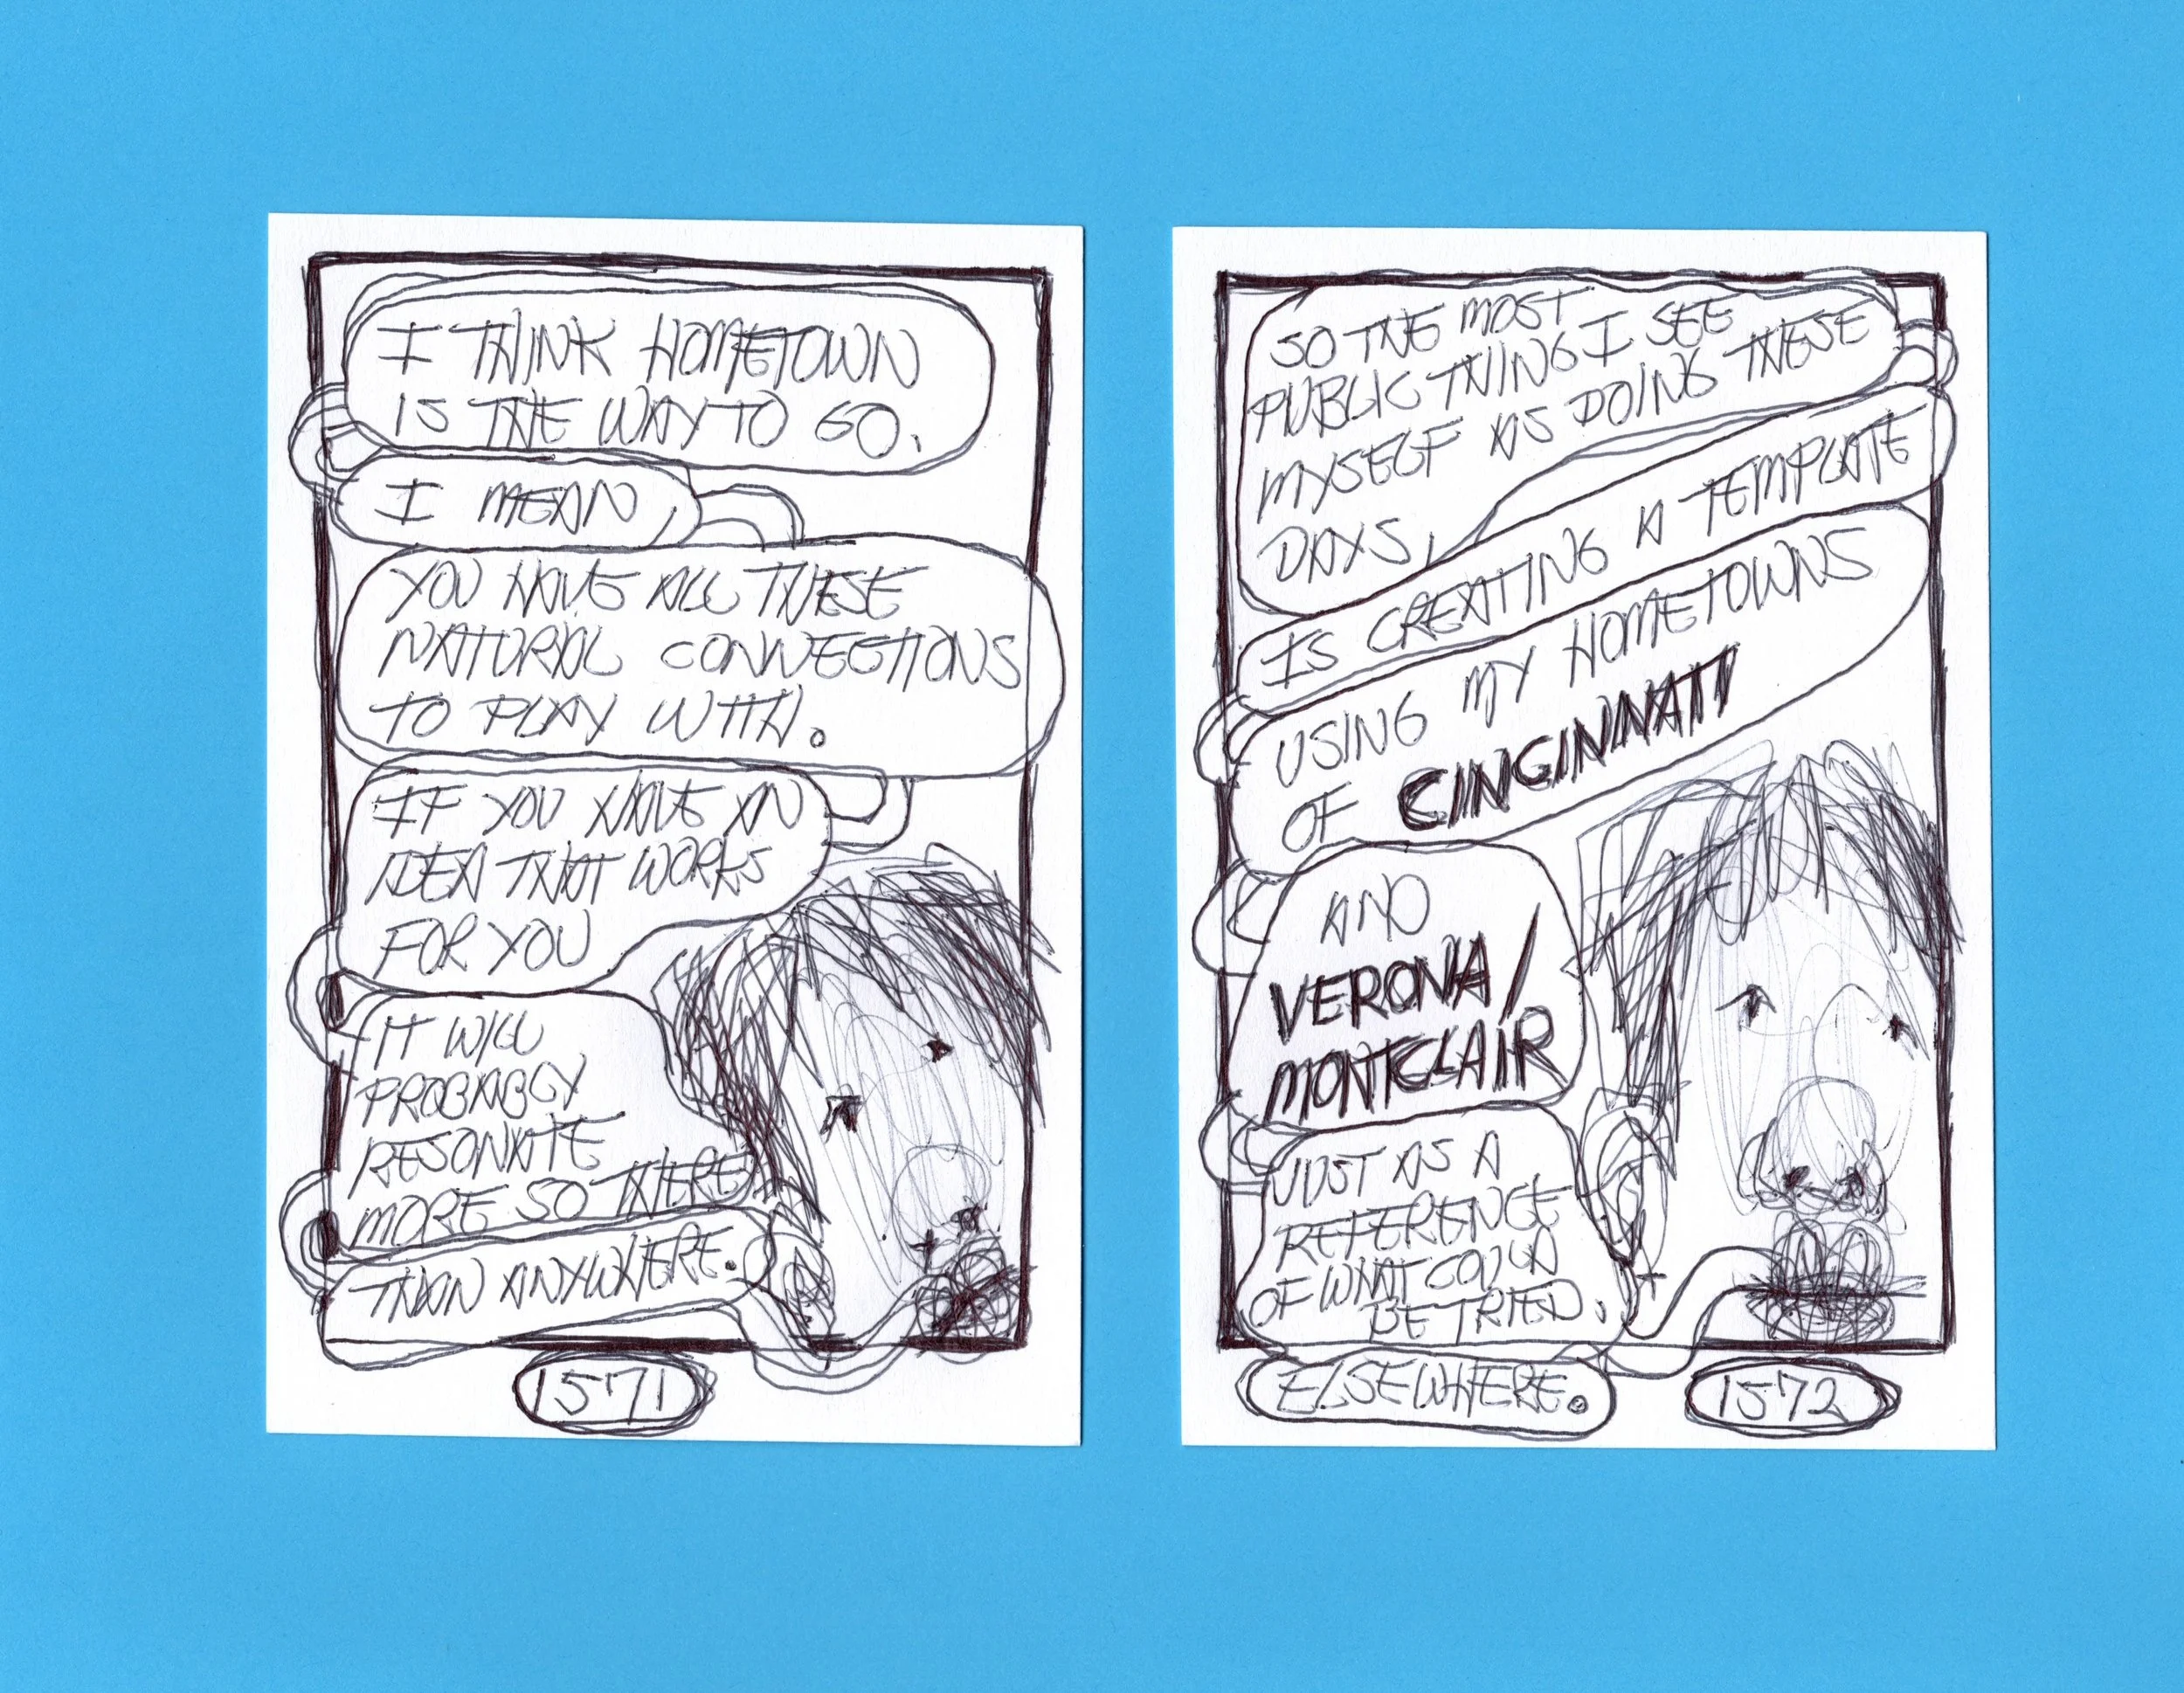 I THINK HOMETOWN
IS THE WAY TO GO.
I MEAN,
YOU HAVE ALL THESE
NATURAL CONNECTIONS
TO PLAY WITH.
IF YOU HAVE AN
IDEA THAT WORKS
FOR YOU
IT WILL
PROBABLY
RESONATE
MORE SO THERE
THAN ANYWHERE.
1571
SO THE MOST
PUBLIC THING I SEE
MYSELF AS DOING THESE
DAYS,
IS CREATING A TEMPLATE
USING MY HOMETOWNS
OF CINCINNATI
AND
VERONA/
MONTCLAIR
JUST AS A
REFERENCE
OF WHAT COULD
BE TRIED,
ELSEWHERE.
1572